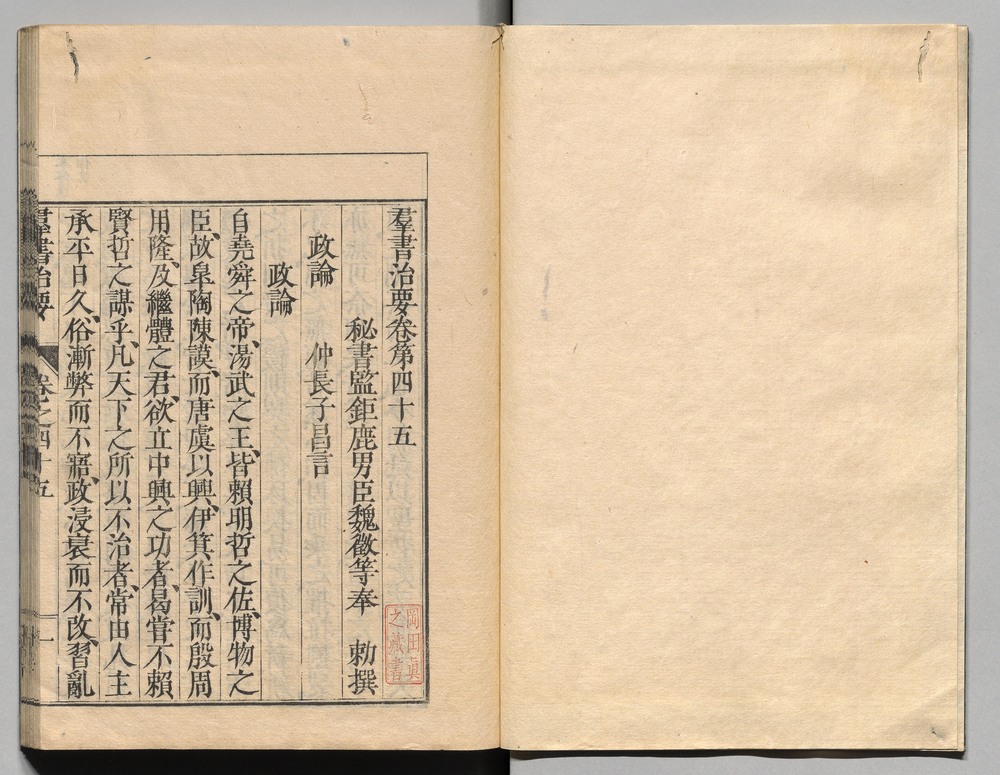 羣書治要卷第四十五
秘書監鉅鹿男臣魏徵等奉　勑撰
政論　仲長子昌言
政論
自堯舜之帝、湯武之王、皆賴明哲之佐、博物之
臣、故皐陶陳謨、而唐虞以興、伊箕作訓、而殷周
用隆、及繼體之君、欲立中興之功者、曷甞不賴
賢哲之謀乎、凡天下之所以不治者、常由人主
承平日久、俗漸弊而不寤、政浸衰而不改、習亂
羣書治要　卷之四十五　一
岡田眞
之藏書